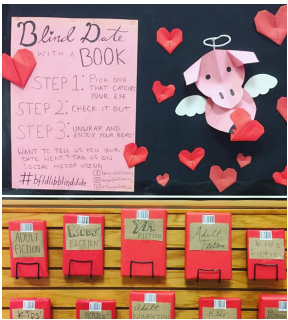 Blind Date
WITH A BOOK
STEP 1: PICK ONE
THAT CATCHES
YOUR EYE
STEP 2: CHECK IT OUT
STEP 3: UNWRAP AND
ENJOY YOUR READ!
WANT TO TELL US HOW YOUR
DATE WENT? TAG US ON
SOCIAL MEDIA USING
ADULT
FICTION
FICTION
YA
FICTION
Adult
Fiction
KID'S
FICTION
KIDS'
Adult
Kids'